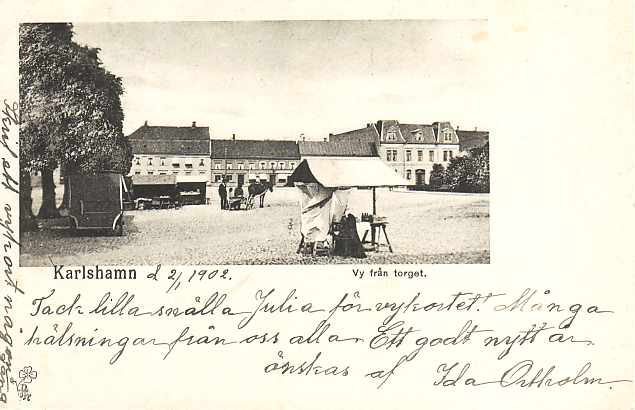 Karlshamn d 2/1 1902.
Vy från torget.
Tack lilla snälla Julia för vykortet. Många
hälsningar från oss alla. Ett godt nytt år
önskas af Ida Ortholm.
Skrif ett vykort någon gång